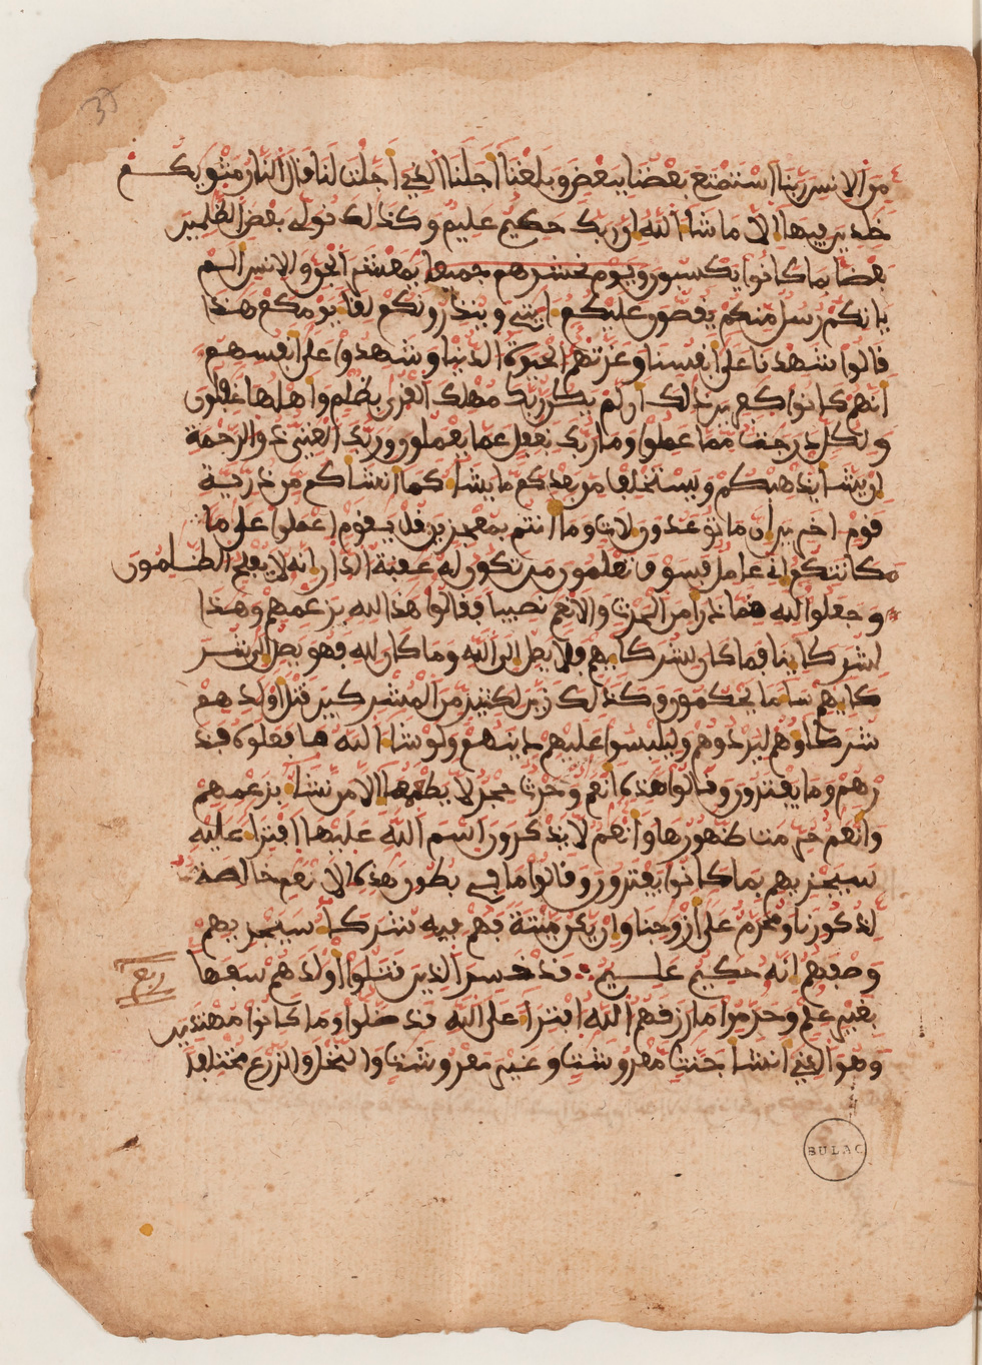 3
من الانس ربنا استمتع بعضنا ببعض وبلغنا اجلنا الذي اجلت لنا قال النار مثويكم
خلدين فيها الا ما شا الله ان ربك حكيم عليم وكذلك نولي بعض الظلمين
بعضا بما كانوا يكسبون ويوم نحشرهم جميعا يمعشر الجن والانس الم
ياتكم رسل منكم يقصون عليكم ايتي وينذرونكم لقا يومكم هذا
قالوا شهدنا على انفسنا وغرتهم الحيوة الدنيا وشهدوا على انفسهم
انهم كانوا كفرين ذلك ان لم يكن ربك مهلك القرى بظلم واهلها غفلون
ولكل درجت مما عملوا وما ربك بغفل عما يعملون وربك الغني ذو الرحمة
ان يشا يذهبكم ويستخلف من بعدكم ما يشا كما انشاكم من ذرية
قوم اخرين ان ما توعدون لات وما انتم بمعجزين قل يقوم اعملوا على ما
مكانتكم اني عامل فسوف تعلمون من تكون له عقبة الدار انه لا يفلح الظلمون
وجعلوا لله مما ذرا من الحرث والانعم نصيبا فقالوا هذا لله بزعمهم وهذا
لشركاينا فما كان لشركايهم فلا يصل الى الله وما كان لله فهو يصل الى شر
كايهم سا ما يحكمون وكذلك زين لكثير من المشركين قتل اولدهم
شركاوهم ليردوهم وليلبسوا عليهم دينهم ولو شا الله ما فعلوه فذ
رهم وما يفترون وقالوا هذه انعم وحرث حجر لا يطعمها الا من نشا بزعمهم
وانعم حرمت ظهورها وانعم لا يذكرون اسم الله عليها افترا عليه
سيجزيهم بما كانوا يفترون وقالوا ما في بطون هذه الانعم خالصة
لذكورنا ومحرم على ازوجنا وان يكن ميتة فهم فيه شركا سيجزيهم
وصفهم انه حكيم عليم قد خسر الذين قتلوا اولدهم سفها
ربع
بغير علم وحرموا ما رزقهم الله افترا على الله قد ضلوا وما كانوا مهتدين
وهو الذي انشا جنت معروشت وغير معروشت والنخل والزرع مختلفا
BULAC